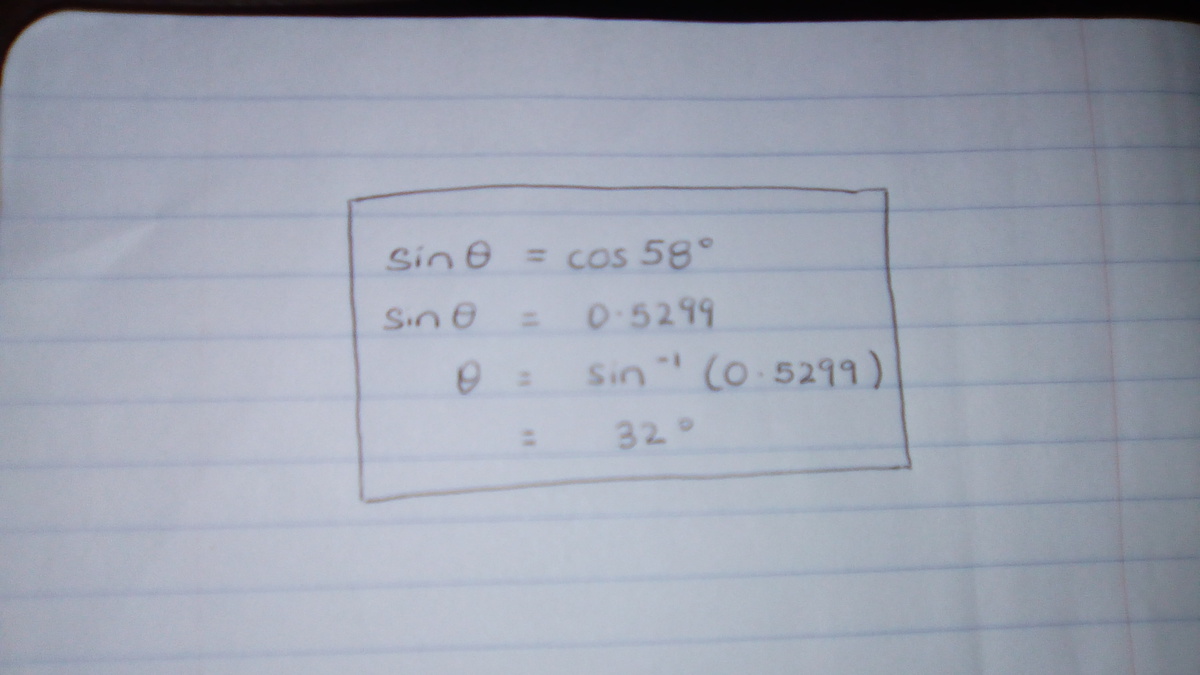 sin θ = cos 58°
sin θ = 0.5299
θ = sin⁻¹ (0.5299)
= 32°